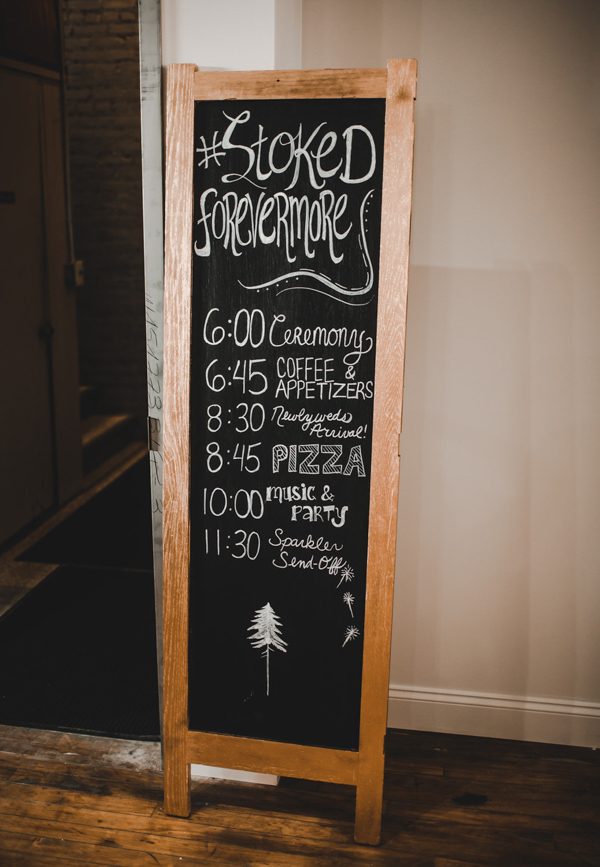 #StokeD
foreverMore
6:00 Ceremony
6:45 COFFEE &
APPETIZERS
8:30 Newlyweds
Arrival!
8:45 PIZZA
10:00 music &
PARTY
11:30 Sparkler
Send-Off